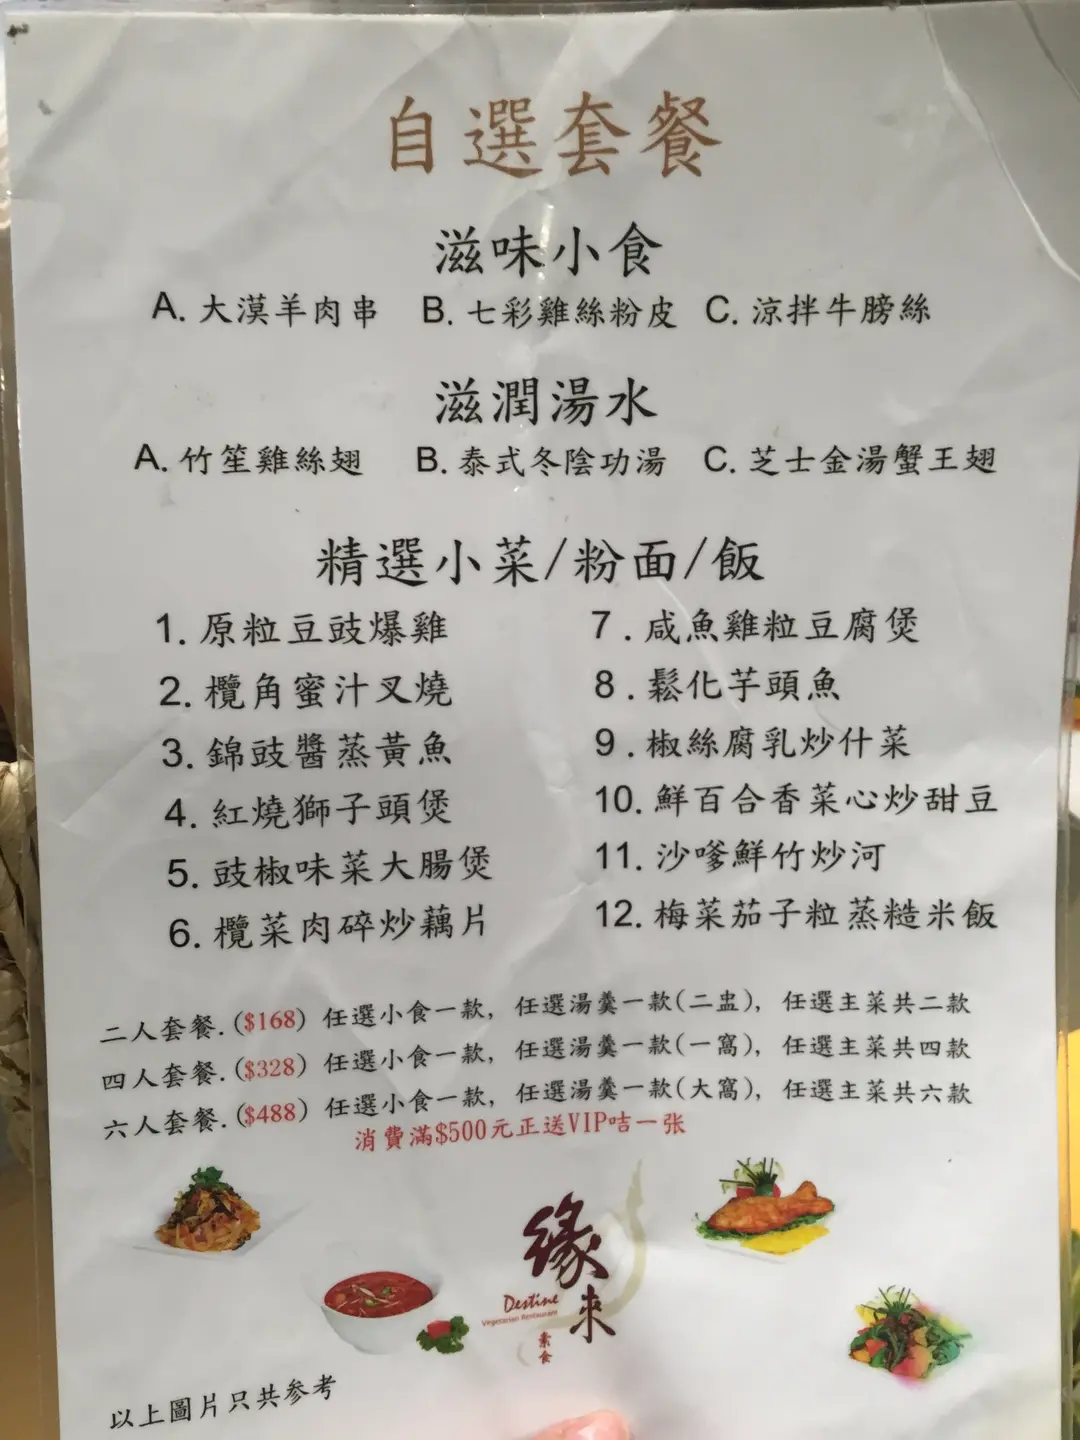 自選套餐
滋味小食
A. 大漠羊肉串 B. 七彩雞絲粉皮 C. 涼拌牛膀絲
滋潤湯水
A. 竹笙雞絲翅 B. 泰式冬陰功湯 C. 芝士金湯蟹王翅
精選小菜/粉面/飯
1. 原粒豆豉爆雞
2. 欖角蜜汁叉燒
3. 錦豉醬蒸黃魚
4. 紅燒獅子頭煲
5. 豉椒味菜大腸煲
6. 欖菜肉碎炒藕片
7. 咸魚雞粒豆腐煲
8. 鬆化芋頭魚
9. 椒絲腐乳炒什菜
10. 鮮百合香菜心炒甜豆
11. 沙嗲鮮竹炒河
12. 梅菜茄子粒蒸糙米飯
二人套餐.($168) 任選小食一款, 任選湯羹一款(二盅), 任選主菜共二款
四人套餐.($328) 任選小食一款, 任選湯羹一款(一窩), 任選主菜共四款
六人套餐.($488) 任選小食一款, 任選湯羹一款(大窩), 任選主菜共六款
消費滿$500元正送VIP咭一张
緣來
Destine
Vegetarian Restaurant
素食
以上圖片只共參考